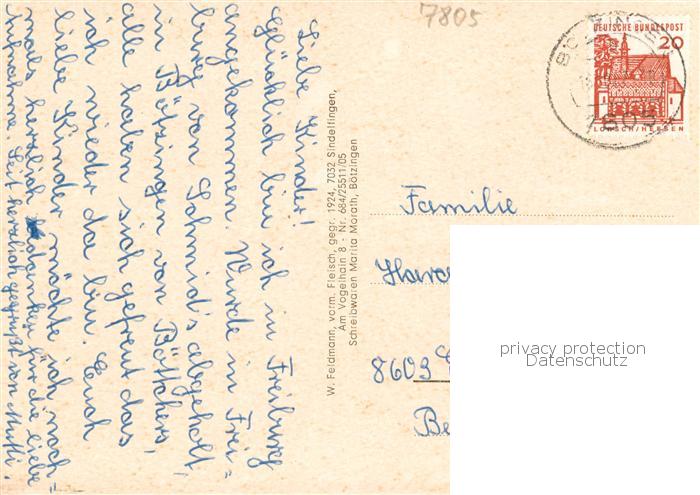 Liebe Kinder!
Glücklich bin ich in Freiburg
angekommen. Wurde in Frei=
burg von Schmid's abgeholt,
in Bötzingen von Böttchers,
alle haben sich gefreut das
ich wieder da bin. Euch
liebe Kinder möchte ich noch-
mals herzlich danken für die liebe
Aufnahme. Seit herzlich gegrüßt von Mutti.
W. Feldmann, vorm. Fleisch, gegr. 1924, 7032 Sindelfingen,
Am Vogelhain 8 - Nr. 684/25511/05
Schreibwaren Marita Morath, Bötzingen
7805
DEUTSCHE BUNDESPOST
20
LORSCH/HESSEN
Familie
8603
privacy protection
Datenschutz